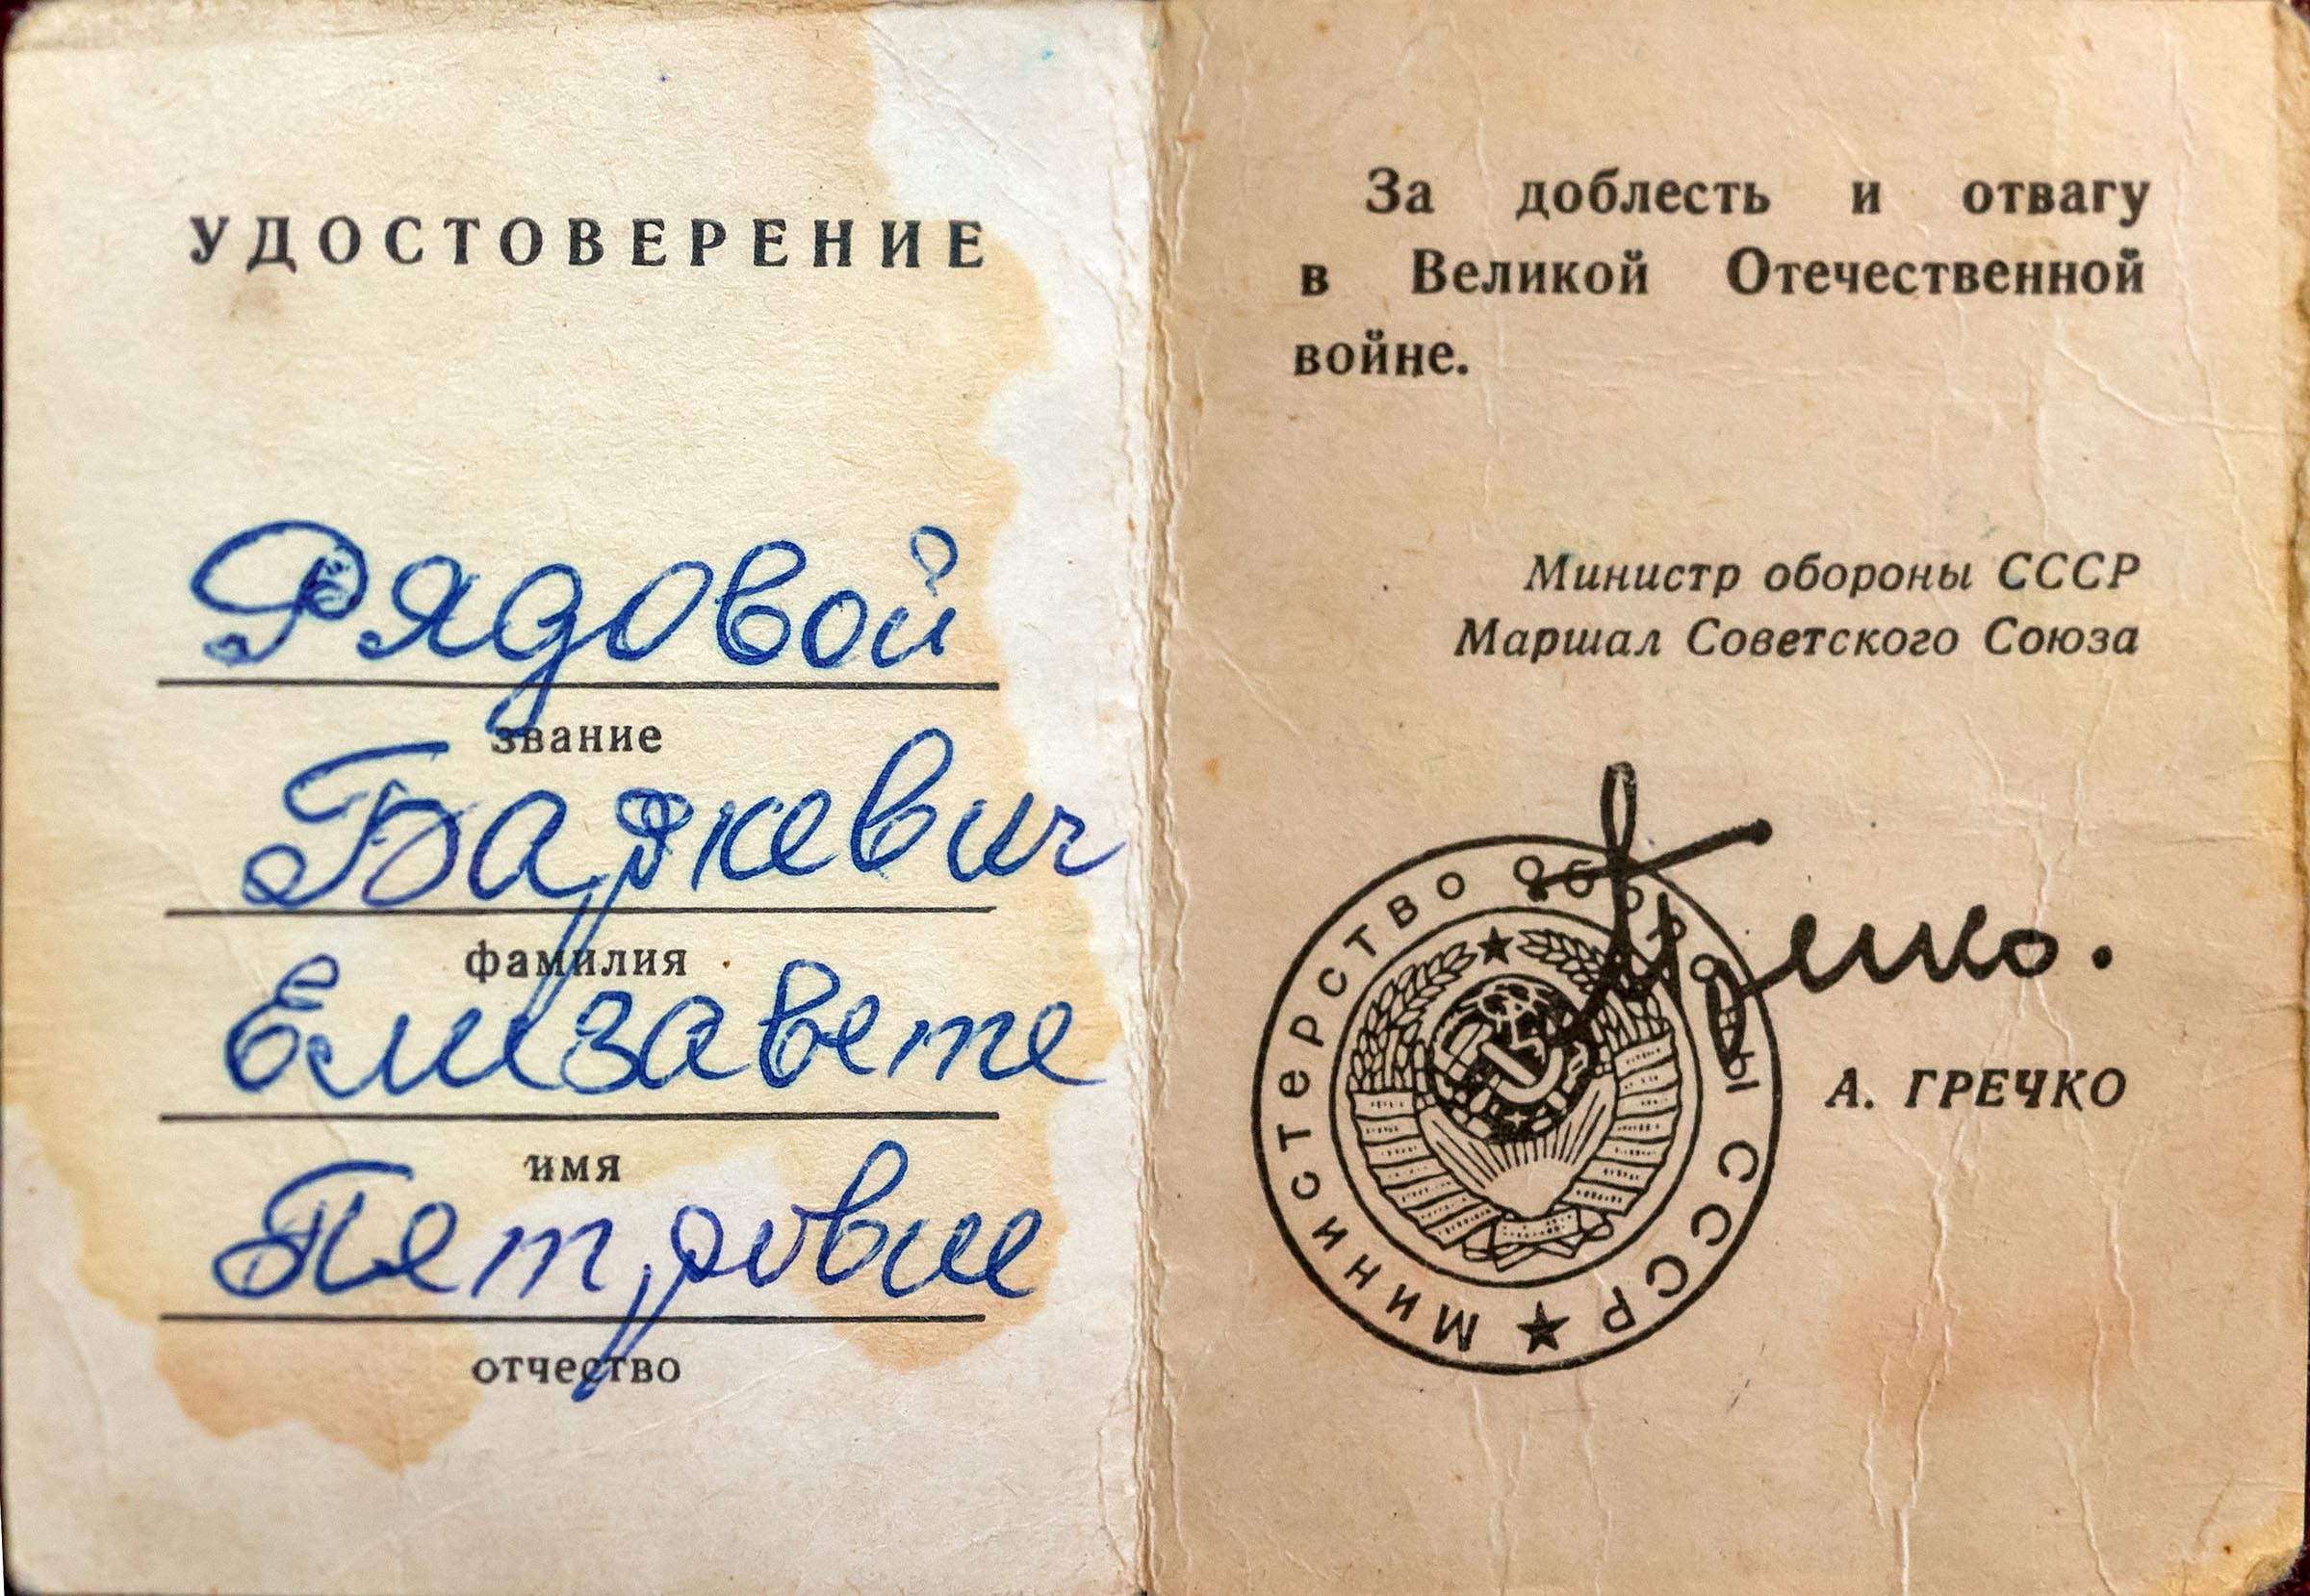 УДОСТОВЕРЕНИЕ
Рядовой
звание
Баркевич
фамилия
Елизавете
имя
Петровне
отчество
За доблесть и отвагу
в Великой Отечественной
войне.
Министр обороны СССР
Маршал Советского Союза
Гречко.
А. ГРЕЧКО
Министерство Обороны СССР